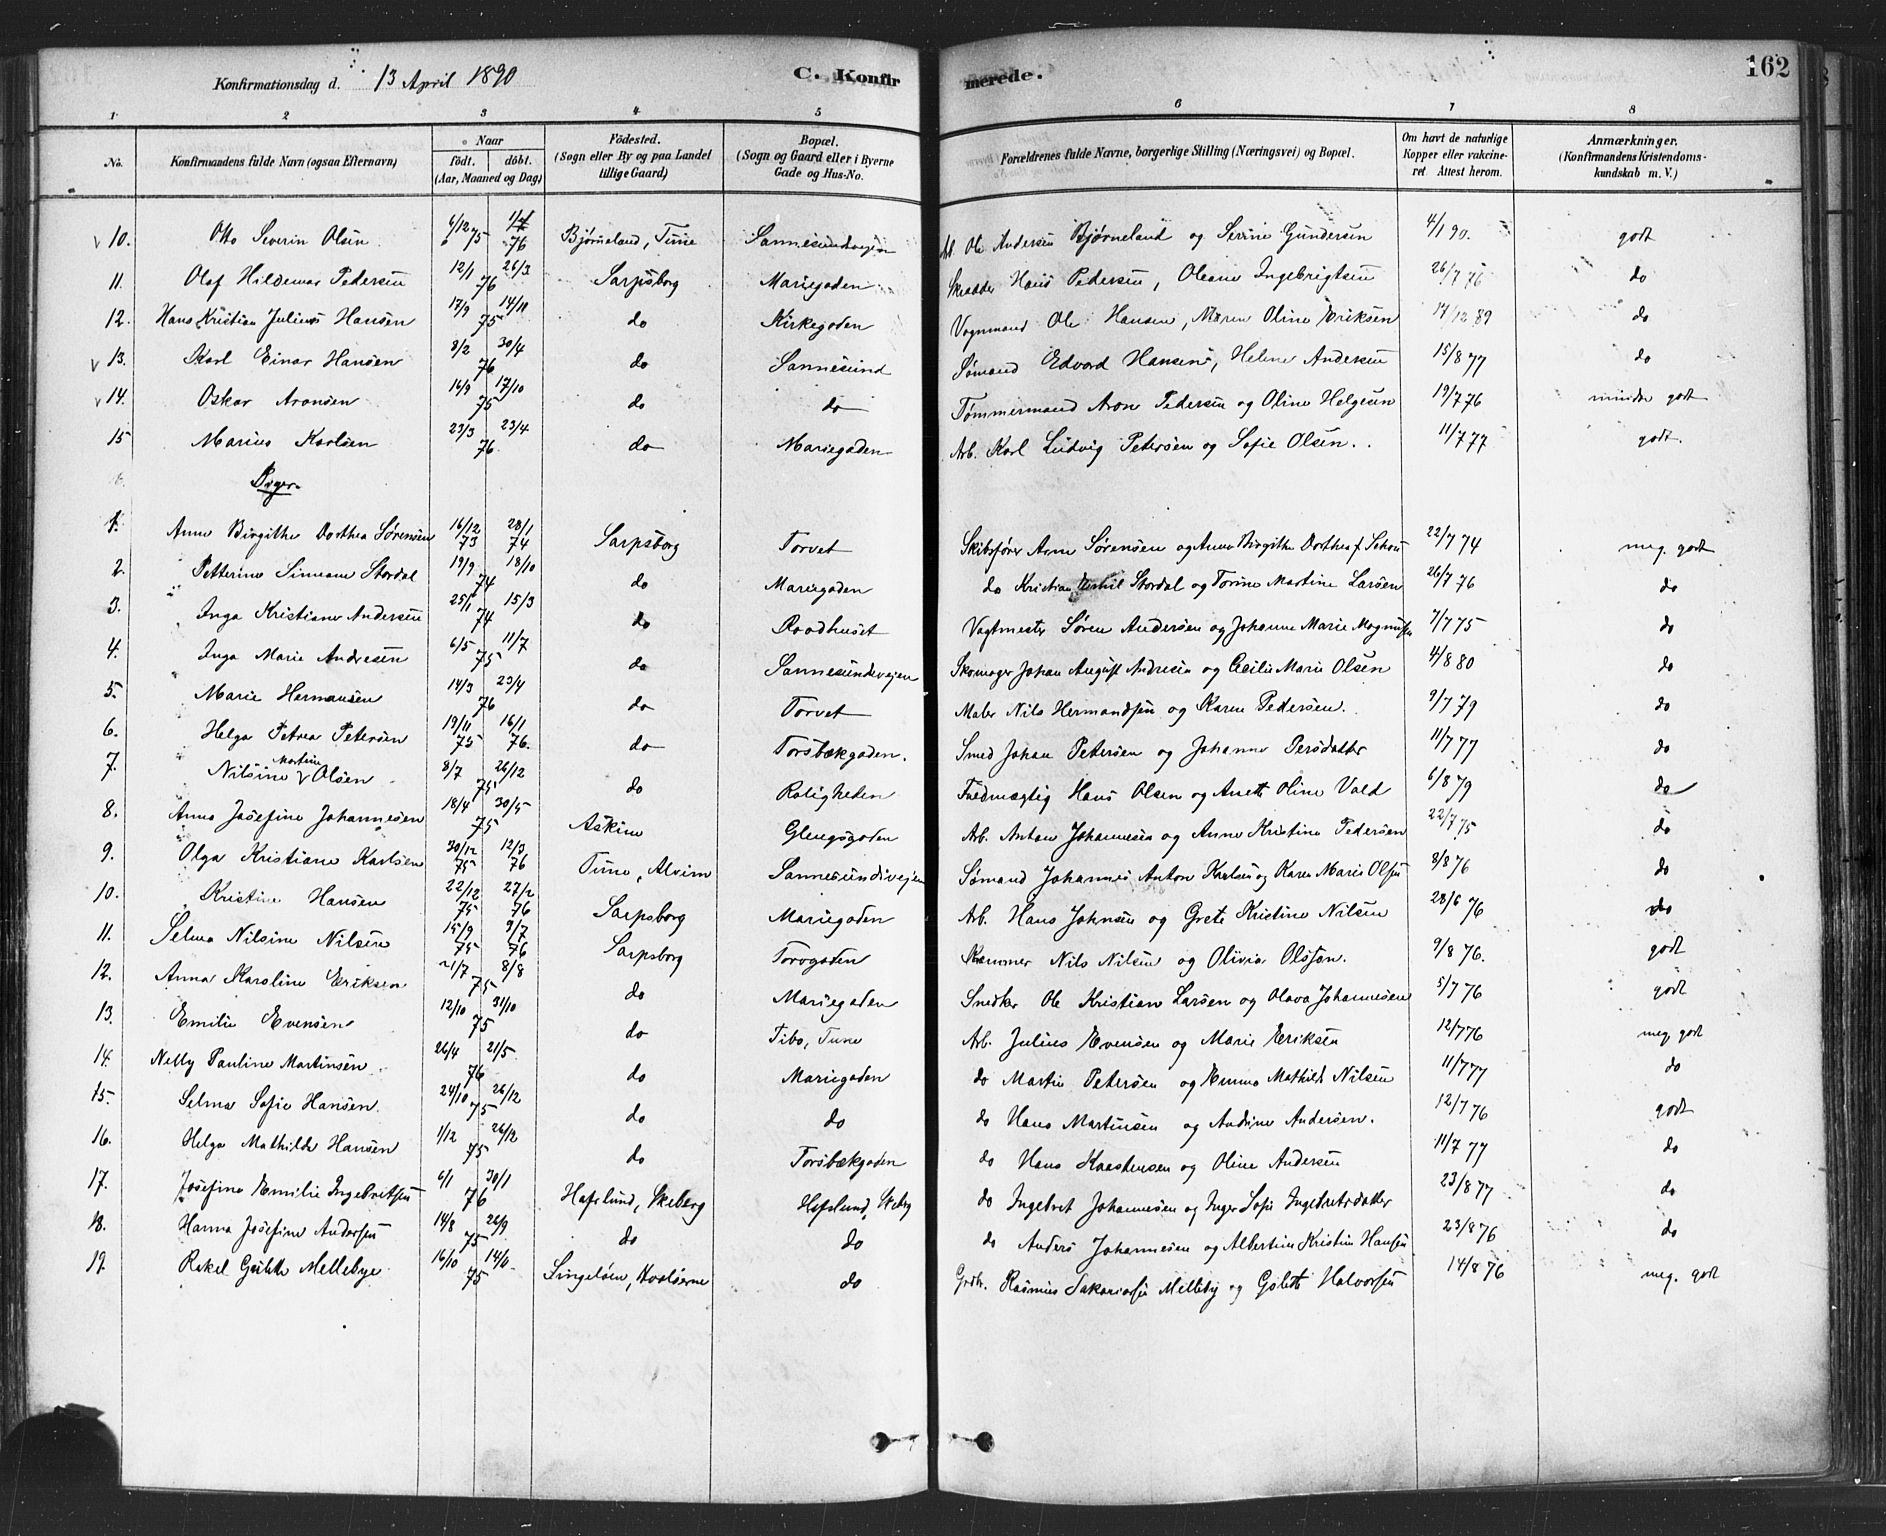 Konfirmationsdag d. 13 April 1890 C. Konfirmerede. 162
1 2 3 4 5 6 7 8
No. Konfirmandens fulde Navn (ogsaa Efternavn) Naar födt. döbt. (Aar, Maaned og Dag) Födested. (Sogn eller By og paa Landet tillige Gaard) Bopæl. (Sogn og Gaard eller i Byerne Gade og Hus-No. Forældrenes fulde Navne, borgerlige Stilling (Næringsvei) og Bopæl. Om havt de naturlige Kopper eller vakcineret. Attest herom. Anmærkninger. (Konfirmandens Kristendomskundskab m. V.)
10. Otto Severin Olsen 6/12 75 76 Bjørneland, Tune Sannesundveien Arb. Ole Andersen Bjørneland og Serine Gundersen 4/1 90. godt
11. Olaf Hildemar Pedersen 12/1 26/3 76 Sarpsborg Mariegaden Skrædder Hans Pedersen, Oleane Ingebrigtsen 26/7 76 do
12. Hans Kristian Julius Hansen 17/9 14/11 75 do Kirkegaden Vognmand Ole Hansen, Maren Oline Eriksen 17/12 89 do
13. Karl Einar Hansen 8/2 30/4 76 do Sannesund Sømand Edvard Hansen, Helene Andersen 15/8 77 do
14. Oskar Aronsen 16/9 17/10 75 do do Tømmermand Aron Pedersen og Oline Helgesen 19/7 76 mindre godt
15 Marius Karlsen 23/3 23/4 76 do Mariegaden Arb. Karl Ludvig Petersen og Sofie Olsen. 11/7 77 godt.
Piger.
1. Anna Birgithe Dorthea Sørensen 16/12 73 28/1 74 Sarpsborg Torvet Skibsfører Arne Sørensen og Anna Birgithe Dorthea f. Schou 22/7 74 meg. godt
2. Petterine Simane Stordal 19/9 18/10 74 do Mariegaden do Kristian Stordal og Torine Martine Larsen 26/7 76 do
3. Inga Kristiane Andersen 25/1 15/3 74 do Raadhuset Vagtmester Søren Andersen og Johanne Marie Magnusen 7/7 75 do
4. Inga Marie Andresen 6/5 11/7 75 do Sannesundveien Skomager Johan August Andresen og Cecilie Marie Olsen 4/8 80 do
5. Marie Hermansen 14/3 23/4 76 do Torvet Maler Nils Hermandsen og Karen Pedersen. 9/7 79 do
6. Helga Petrea Petersen 19/11 75 16/1 76. do Torsbækgaden. Smed Johan Petersen og Johanne Persdatter 11/7 77 do
7. Nilsine Martine Olsen 8/7 26/12 75 do Roligheden Fuldmægtig Hans Olsen og Anette Oline Vold 6/8 79 do
8. Anna Josefine Johannesen 18/4 30/5 75 Askim Glengsgaden Arb. Anton Johannesen og Anne Kristine Pedersen 22/7 75 do
9. Olga Kristiane Karlsen 30/12 75 12/3 76 Tune, Alvim Sannesundsveien Sømand Johannes Anton Karlsen og Karen Marie Olsen 8/8 76 do
10. Kristine Hansen 22/12 75 27/2 76 Sarpsborg Mariegaden Arb. Hans Johnsen og Grete Kristine Nilsen 28/6 76 do
11. Selma Nilsine Nilsen 15/9 75 9/7 76 Sarpsborg Torvgaden Nils Nilsen og Olivia Olsson. 9/8 76. godt
12. Anna Karoline Eriksen 1/7 8/8 75 do Mariegaden Snedker Ole Kristian Larsen og Olava Johannesen 5/7 76 godt
13. Emilie Evensen 12/10 31/10 75 do Tibo, Tune Arb. Julius Evensen og Marie Eriksen 12/7 76 meg godt
14. Nelly Pauline Martinsen 26/4 21/5. 76 do Mariegaden do Martin Petersen og Emma Mathilde Nilsen 11/7 77 do
15. Selma Sofie Hansen. 24/10 26/12 75 do do do Hans Martinsen og Andine Andersen. 12/7 76 godt
16. Helga Mathilde Hansen 1/12 26/12 75 do Torsbækgaden do Hans Karstensen og Oline Andersen 11/7 77 do
17. Josefine Emilie Ingebretsen 6/1 30/1 76 Hafslund, Skeberg Hafslund, Skeberg do Ingebret Johannesen og Inger Sofie Ingebretsdatter 23/8 77 do
18. Hanna Josefine Andersen 14/8 26/9 75 do do do Anders Johannesen og Albertine Kristine Hansen 23/8 76 do
19. Rakel Gulette Mellebye 16/10 75 Singeløen, Hvaløerne do Rasmus Sakariasen Melleby og Halvorsen 14/8 76 meg. godt